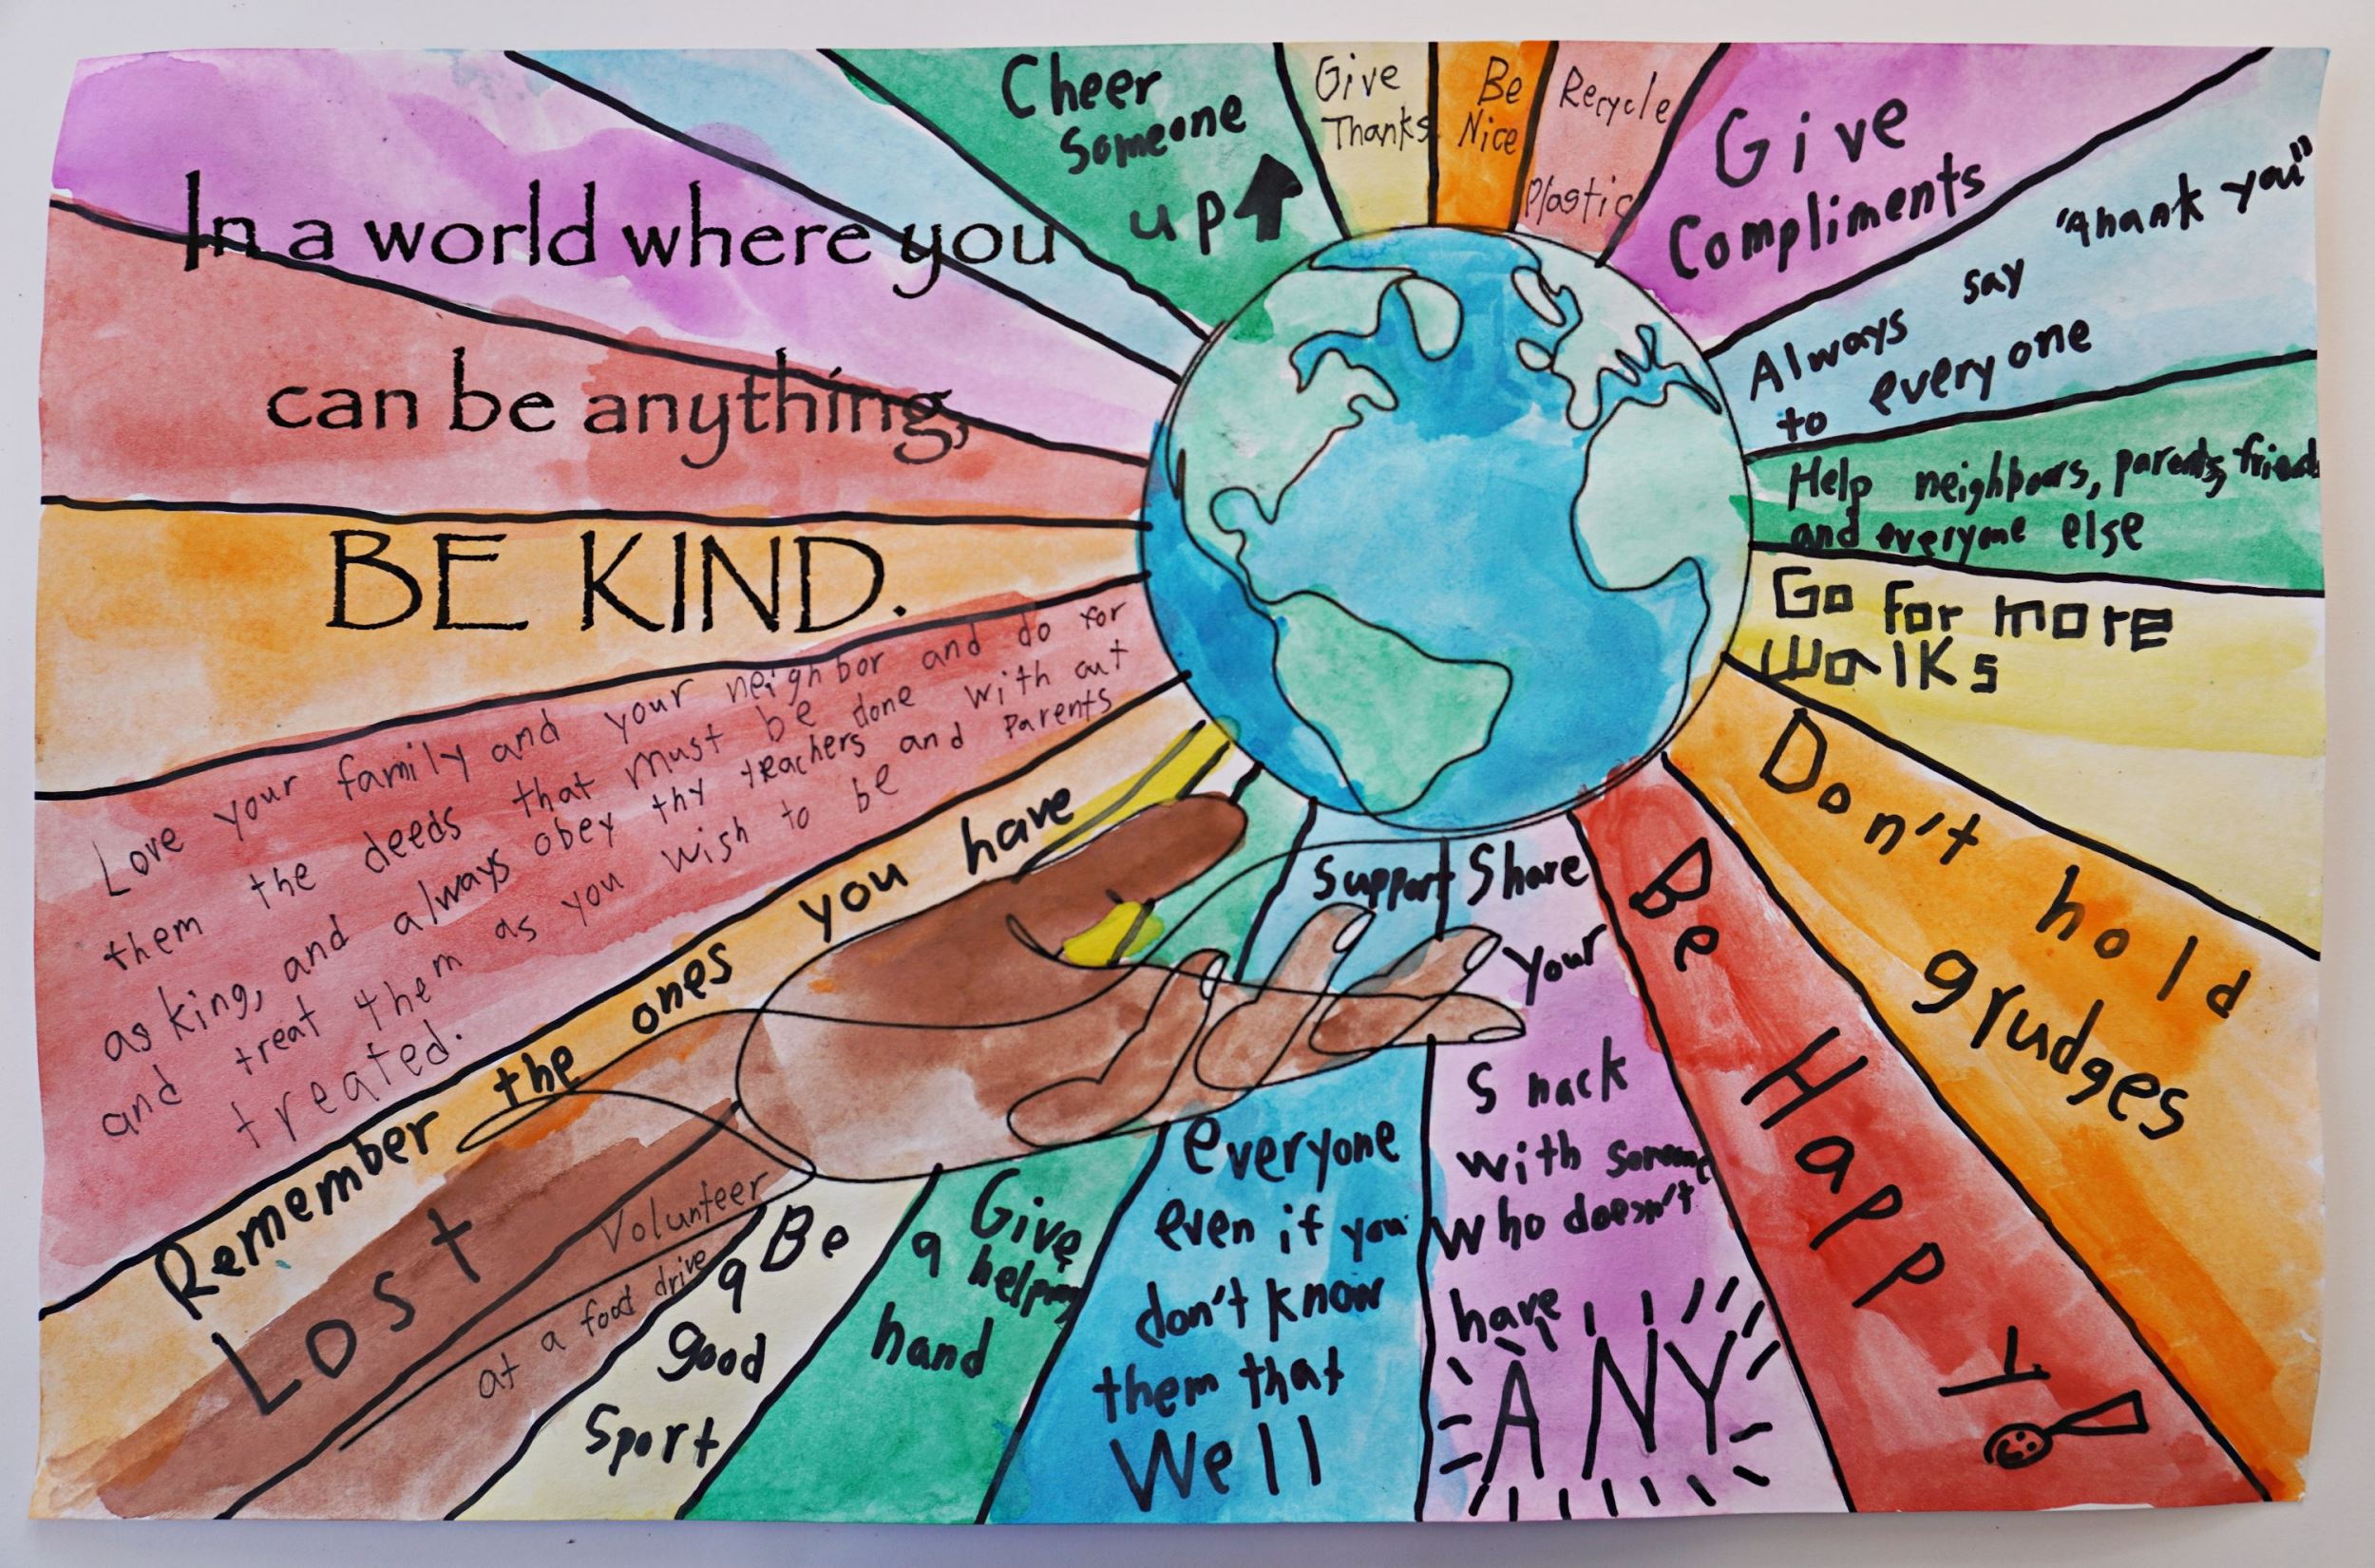 In a world where you
can be anything,
BE KIND.
Cheer
Someone
up
Give
Thanks
Be
Nice
Recycle
Plastic
Give
Compliments
Always say "thank you"
to everyone
Help neighbors, parents, friends
and everyone else
Go for more
walks
Don't hold
grudges
Be Happy!
Share
Your
Snack
with someone
who doesn't
have
ANY
Support
everyone
even if you
don't know
them that
Well
Give
a helping
hand
Be
a
good
Sport
Volunteer
at a food drive
Remember the ones you have
Lost
Love your family and your neighbor and do for
them the deeds that must be done with out
asking, and always obey thy teachers and Parents
and treat them as you wish to be
treated.